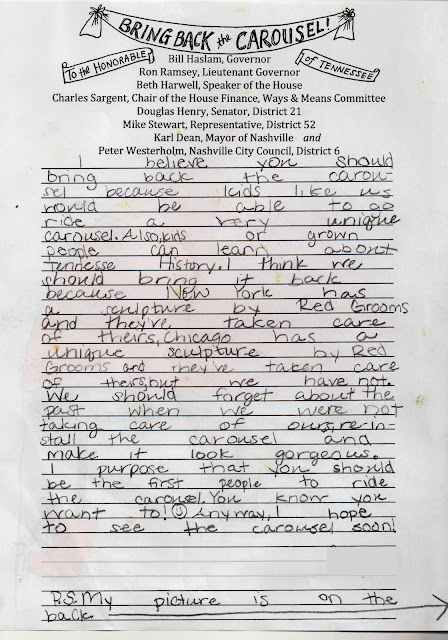 BRING BACK the CAROUSEL!
To the HONORABLE
of TENNESSEE
Bill Haslam, Governor
Ron Ramsey, Lieutenant Governor
Beth Harwell, Speaker of the House
Charles Sargent, Chair of the House Finance, Ways & Means Committee
Douglas Henry, Senator, District 21
Mike Stewart, Representative, District 52
Karl Dean, Mayor of Nashville and
Peter Westerholm, Nashville City Council, District 6
I believe you should
bring back the carou-
sel because kids like us
would be able to go
ride a very unique
carousel. Also, kids or grown
people can learn about
Tennesse History. I think we
should bring it back
because NEW York has
a sculpture by Red Grooms
and they've taken care
of theirs, Chicago has a
unique sculpture by Red
Grooms and they've taken care
of theirs, but we have not.
We should forget about the
past when we were not
taking care of ours, re-in-
stall the carousel and
make it look gorgeous.
I purpose that you should
be the first people to ride
the carousel. You know you
want to! ☺ Anyway, I hope
to see the carousel soon!
P.S. My picture is on the
back.